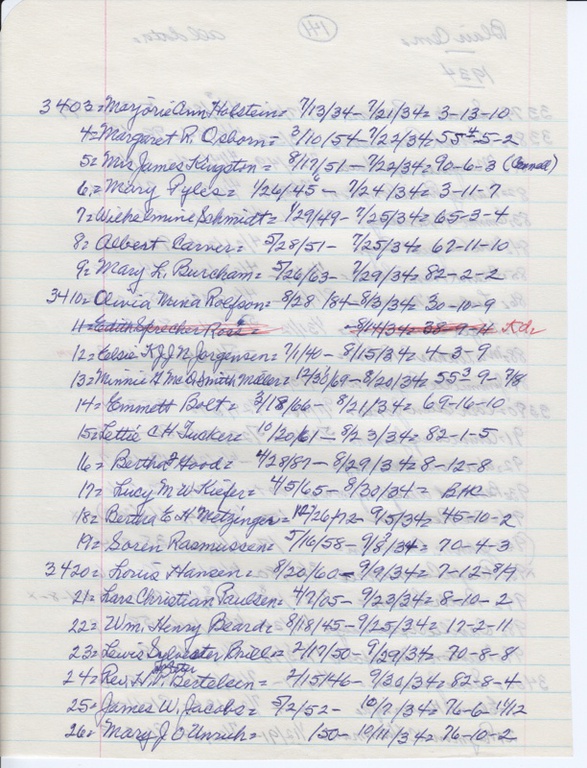 3403= Marjorie Ann Habstein= 7/13/34- 7/21/34= 3-13-10
4= Margaret R. Osborn= 3/10/54- 7/22/34= 55 4-5-2
5= Mrs James Kingston= 8/17/51- 7/22/34= 90-6-3
6= Mary Pyles= 1/26/45 6 - 7/24/34= 3-11-7
7= Wilhelmine Schmidt= 1/29/49- 7/25/34= 65-3-4
8= Albert Carver= 5/28/51- 7/25/34= 67-11-10
9= Mary L. Burcham= 5/26/63- 7/29/34= 82-2-2
3410= Olivia Mina Rolfson= 8/28/84- 8/3/34= 30-10-9
11= Edith Sprecher Ross= - 8/14/34= 38-9-4
12= Elsie K J J N Jorgensen= 7/1/40- 8/15/34= 4-3-9
13= Minnie Smith Miller= 12/30/69- 8/20/34= 55 3 9-7/8
14= Emmett Bolt= 3/18/66- 8/21/34= 69-16-10
15= Lettie C H Tucker= 10/20/61- 8/23/34= 82-1-5
16= Bertha Hood= 4/28/87- 8/29/34= 8-12-8
17= Lucy M W Kiefer= 4/5/65- 8/30/34=
18= Bertha E. H Metzinger= 12/26/72- 9/5/34= 45-10-2
19= Soren Rasmussen= 5/16/58- 9/8/34= 70-4-3
3420= Louis Hansen= 8/20/60- 9/9/34= 7-12-8/9
21= Lars Christian Paulsen= 4/7/05- 9/23/34= 8-10-2
22= Wm. Henry Beard= 8/18/45- 9/25/34= 17-2-11
23= Lewis Sylvester 2/17/50- 9/29/34= 70-8-8
24= Rev. H. Bertelsen= 2/15/46- 9/30/34= 82-8-4
25= James W. Jacobs= 5/2/52- 10/7/34= 76-6-11/12
26= Mary J. O Unruh= /50- 10/11/34= 76-10-2